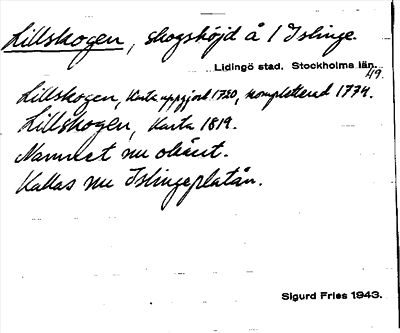 Lillskogen, skogshöjd å 1 Islinge.
Lidingö stad. Stockholms län.
49.
Lillskogen, Karta uppgjord 1720, kompletterad 1774.
Lillskogen, Karta 1819.
Namnet nu okänt.
Kallas nu Islingeplatån.
Sigurd Fries 1943.